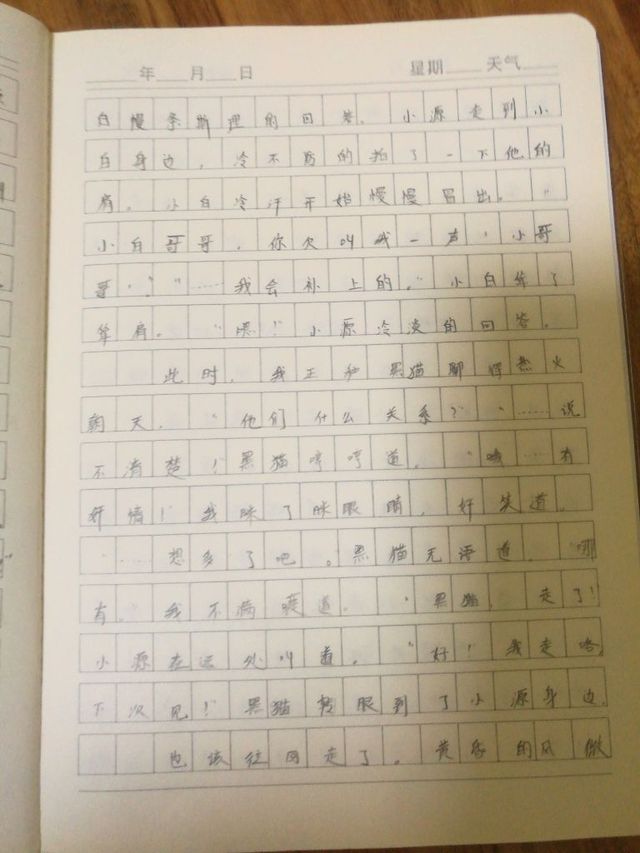 年 月 日 星期 天气
白慢条斯理的回答。小源走到小
白身边，冷不防的拍了一下他的
肩。小白冷汗开始慢慢冒出。“
小白哥哥，你欠叫我一声‘小哥
哥’。”“……我会补上的。”小白耸了
耸肩。“嗯！”小源冷淡的回答。
此时，我正和黑猫聊得热火
朝天。“他们什么关系？”“……说
不清楚！黑猫哼哼道。“咦……有
奸情！我眯了眯眼睛，奸笑道。
“……想多了吧。黑猫无语道。哪
有。我不满道。“黑猫，走了！
小源在远处叫道。“好！我走咯，
下次见！黑猫转眼到了小源身边。
也该往回走了。黄昏的风微